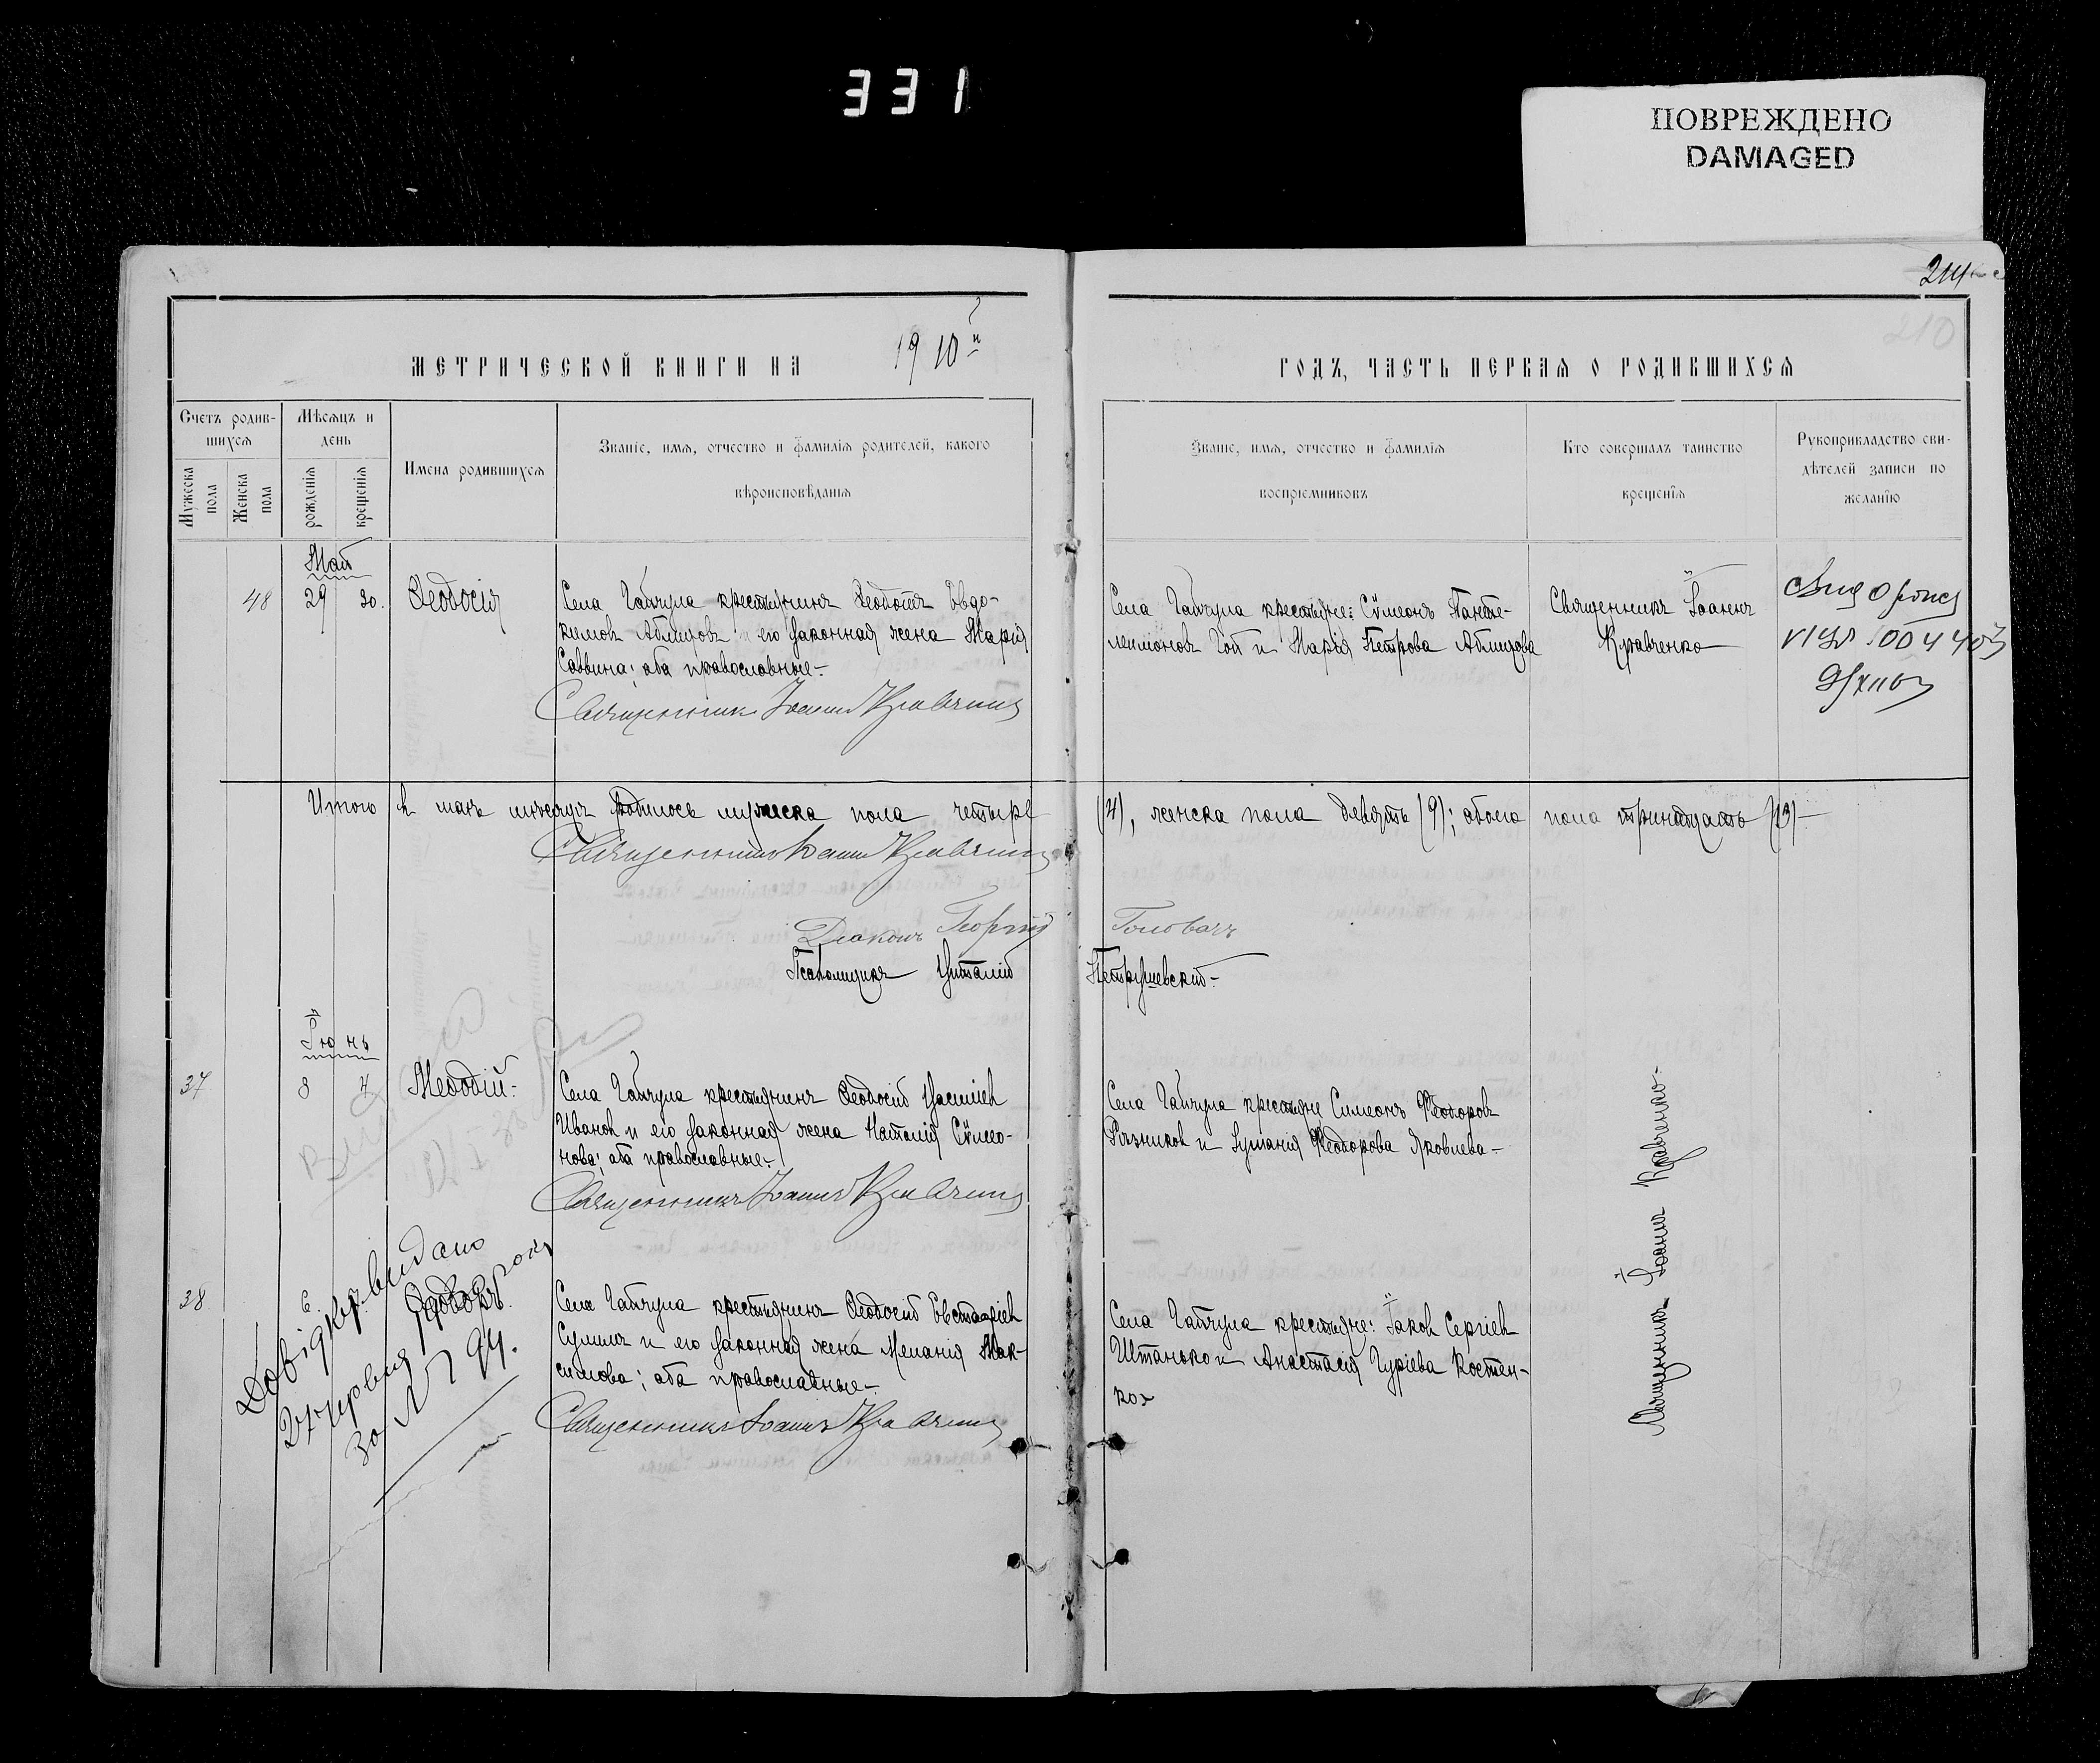 331
ПОВРЕЖДЕНО
DAMAGED
214
210
МЕТРИЧЕСКОЙ КНИГИ НА 1910й
ГОДЪ, ЧАСТЬ ПЕРВАЯ О РОДИВШИХСЯ
Счетъ родив-
шихся
Мужеска
пола
Женска
пола
Мѣсяцъ и
день
рожденія
крещенія
Имена родившихся
Званіе, имя, отчество и фамилія родителей, какого
вѣроисповѣданія
Званіе, имя, отчество и фамилія
воспріемниковъ
Кто совершалъ таинство
крещенія
Рукоприкладство сви-
дѣтелей записи по
желанію
Май
48 29 30. Ѳеодосія
Села Гайчула крестьянинъ Ѳеодотъ Евдо-
кимовъ и его законная жена Марія
Саввина; оба православные.-
Священникъ Іоаннъ Кравченко
Села Гайчула крестьяне: Сѵмеонъ Панте-
леимоновъ Гой и Марія Петрова
Священникъ Іоаннъ
Кравченко
Итого въ маѣ мѣсяцѣ родилось мужеска пола четыре (4), женска пола девять (9); обоего пола тринадцать (13)-
Священникъ Іоаннъ Кравченко
Діаконъ Георгій Головачъ
Псаломщикъ Виталій Петрушевскій.-
Іюнь
37 3 4 Меѳодій.
Села Гайчула крестьянинъ Ѳеодосій
Ивановъ и его законная жена Наталія Сѵмео-
нова; оба православные.-
Священникъ Іоаннъ Кравченко
Села Гайчула крестьяне Симеонъ Ѳеодоровъ
Рѣзниковъ и Ѳеодорова Яковлева-
Священникъ Іоаннъ Кравченко.
38 6 Ѳеодоръ.
Села Гайчула крестьянинъ Ѳеодосій Евстафіевъ
и его законная жена Меланія Мак-
симова; оба православные.-
Священникъ Іоаннъ Кравченко
Села Гайчула крестьяне: Іаковъ Сергіевъ
Штанько и Анастасія Гуріева Костен-
ко-
видано
червня
за № 94.